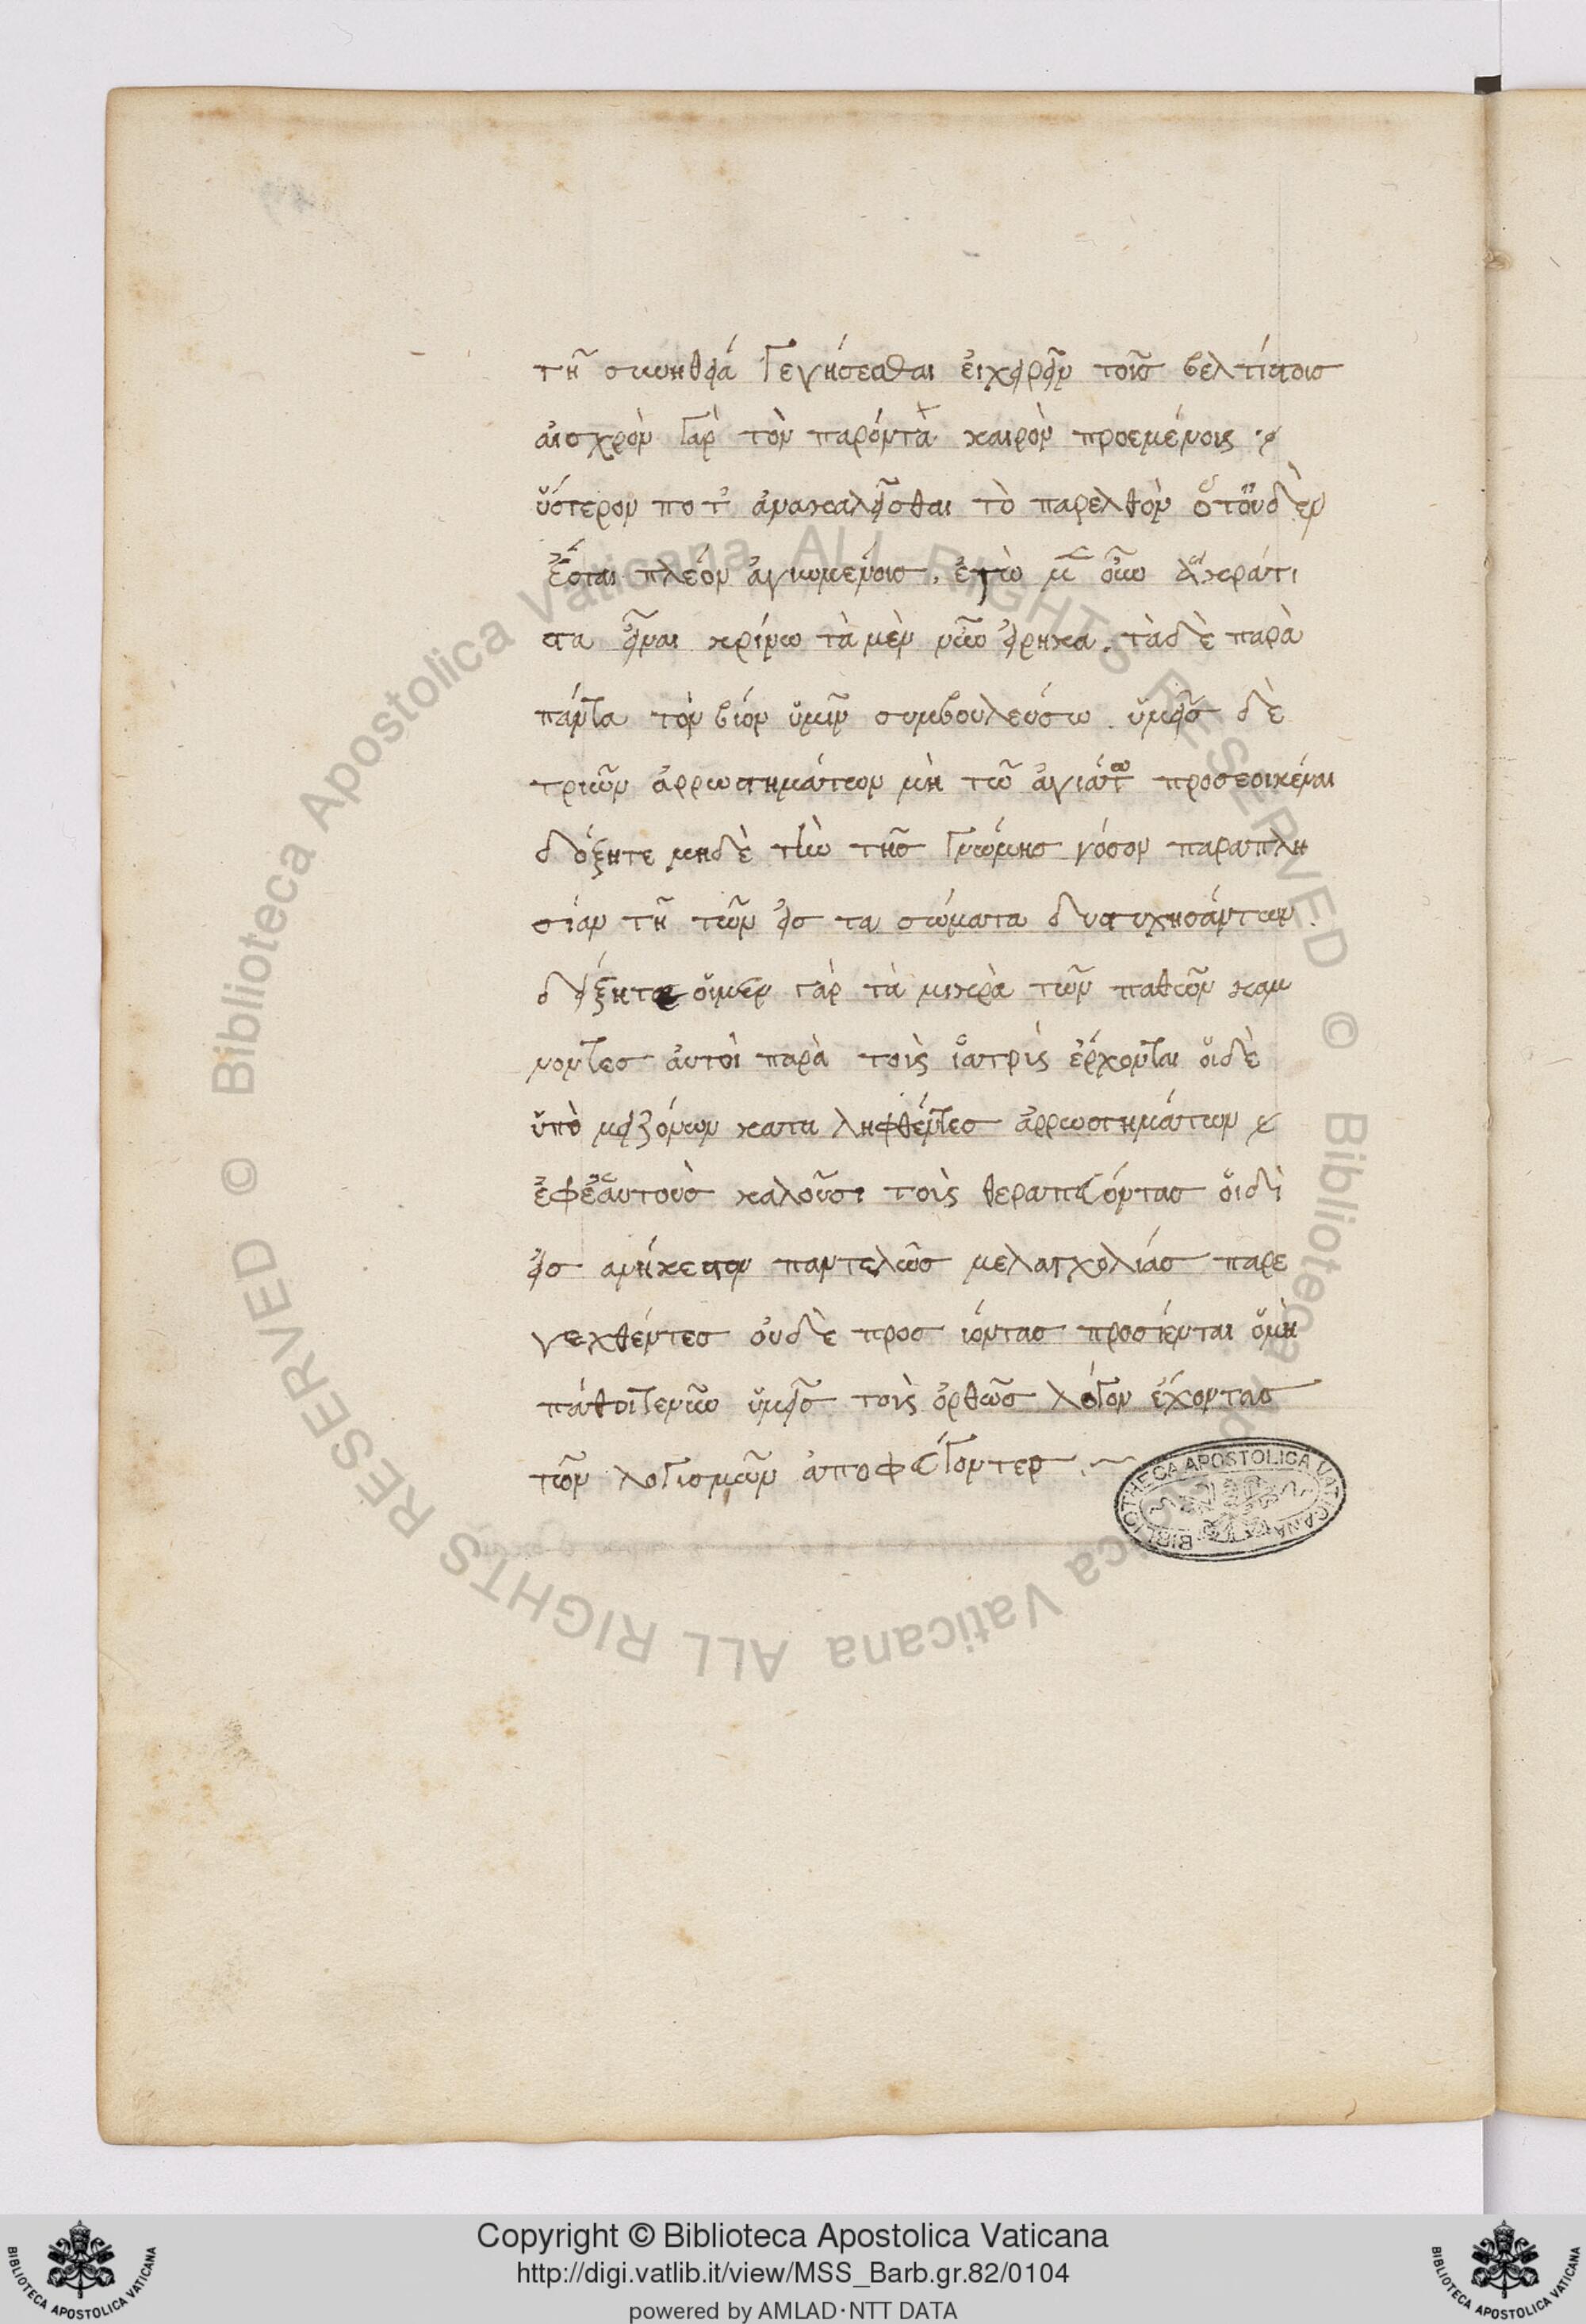 τῆ συνηθεία γενήσεσθαι ἐγχειρεῖν τοῖσ βελτίστοισ
ἀισχρὸν γὰρ τὸν παρόντα καιρὸν προεμένοις
ὕστερον ποτ' ἀνακαλεῖσθαι τὸ παρελθὸν
ἔσται πλέον ἀγνωμένοισ. ἐγὼ μ(ὲν) οὖν ἃ κράτι
στα εἶναι κρίνω τὰ μὲν νῦν εἴρηκα. τὰ δὲ παρὰ
πάντα τὸν βίον ὑμῖν συμβουλεύσω. ὑμεῖσ δὲ
τριῶν ἀρρωστημάτων μὴ τῶ ἀνιάτω προσεοικέναι
δόξητε μηδὲ τὴν τῆσ γνώμησ νόσον παραπλη
σίαν τῆ τῶν εἰσ τα σώματα δυστυχησάντων.
οἵμεν γὰρ τὰ μικρὰ τῶν παθῶν καμ
νοντεσ ἀυτοὶ παρὰ τοὺς ἰατροὺς ἔρχονται ὅιδὲ
ὑπὸ μειζόνων κατα ληφθέντεσ ἀρρωστημάτων
ἐφἑαυτοὺσ καλοῦσι τοὺς θεραπεύοντασ ὅιδὲ
εἰσ ανήκεστον παντελῶσ μελαγχολίασ παρε
νεχθέντεσ ὀυδὲ προσ ιόντασ προσίενται ὅμὴ
πάθοιτενῦν ὑμεῖσ τοὺς ὀρθῶσ λόγον ἔχοντασ
τῶν λογισμῶν ἀποφεύγοντεσ.
BIBLIOTHECA APOSTOLICA VATICANA
© Biblioteca Apostolica Vaticana ALL RIGHTS RESERVED
© Biblioteca Apostolica Vaticana ALL RIGHTS RESERVED
Copyright © Biblioteca Apostolica Vaticana
http://digi.vatlib.it/view/MSS_Barb.gr.82/0104
powered by AMLAD·NTT DATA
BIBLIOTECA APOSTOLICA VATICANA
BIBLIOTECA APOSTOLICA VATICANA